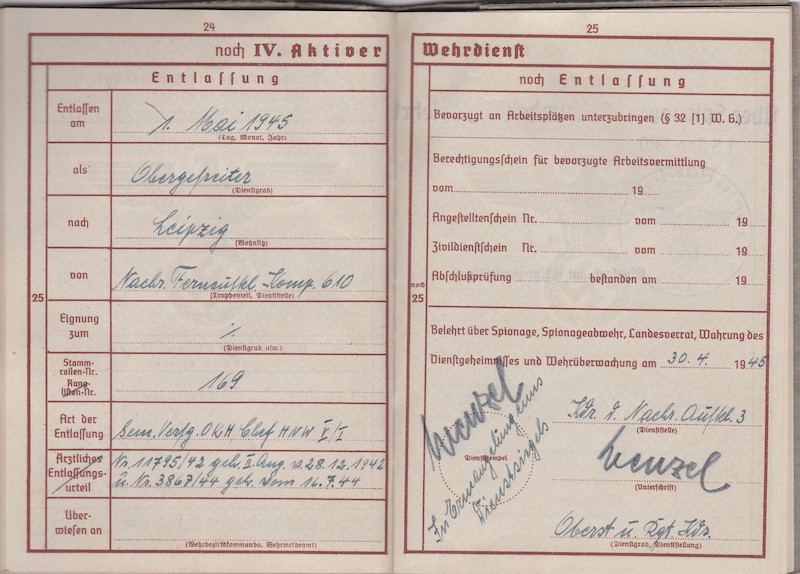 24
noch IV. Aktiver
Entlassung
Entlassen am
1. Mai 1945
(Tag, Monat, Jahr)
als
Obergefreiter
(Dienstgrad)
nach
Leipzig
(Wohnsitz)
von
Nachr. Fernaufkl. Komp. 610
(Truppenteil, Dienststelle)
25
Eignung zum
./.
(Dienstgrad usw.)
Stamm-
rollen-Nr.
Rang-
listen-Nr.
169
Art der
Entlassung
Gem. Verfg. OKH Chef HNW I/I
Ärztliches
Entlassungs-
urteil
Nr. 11795/42 geh. II Ang. v. 28.12.1942
u. Nr. 3867/44 geh. vom 16.7.44
Über-
wiesen an
(Wehrbezirkskommando, Wehrmeldeamt)
25
Wehrdienst
noch Entlassung
Bevorzugt an Arbeitsplätzen unterzubringen (§ 32 [1] W. G.)
Berechtigungsschein für bevorzugte Arbeitsvermittlung
vom 19
Angestelltenschein Nr. vom 19
Zivildienstschein Nr. vom 19
Abschlußprüfung bestanden am 19
noch
25
Belehrt über Spionage, Spionageabwehr, Landesverrat, Wahrung des
Dienstgeheimnisses und Wehrüberwachung am 30.4. 1945
Wenzel
In Ermangelung eines
Dienstsiegels
Dienststempel
Kdr. d. Nachr. Aufkl. 3
(Dienststelle)
Wenzel
(Unterschrift)
Oberst u. Rgt. Kdr.
(Dienstgrad, Dienststellung)